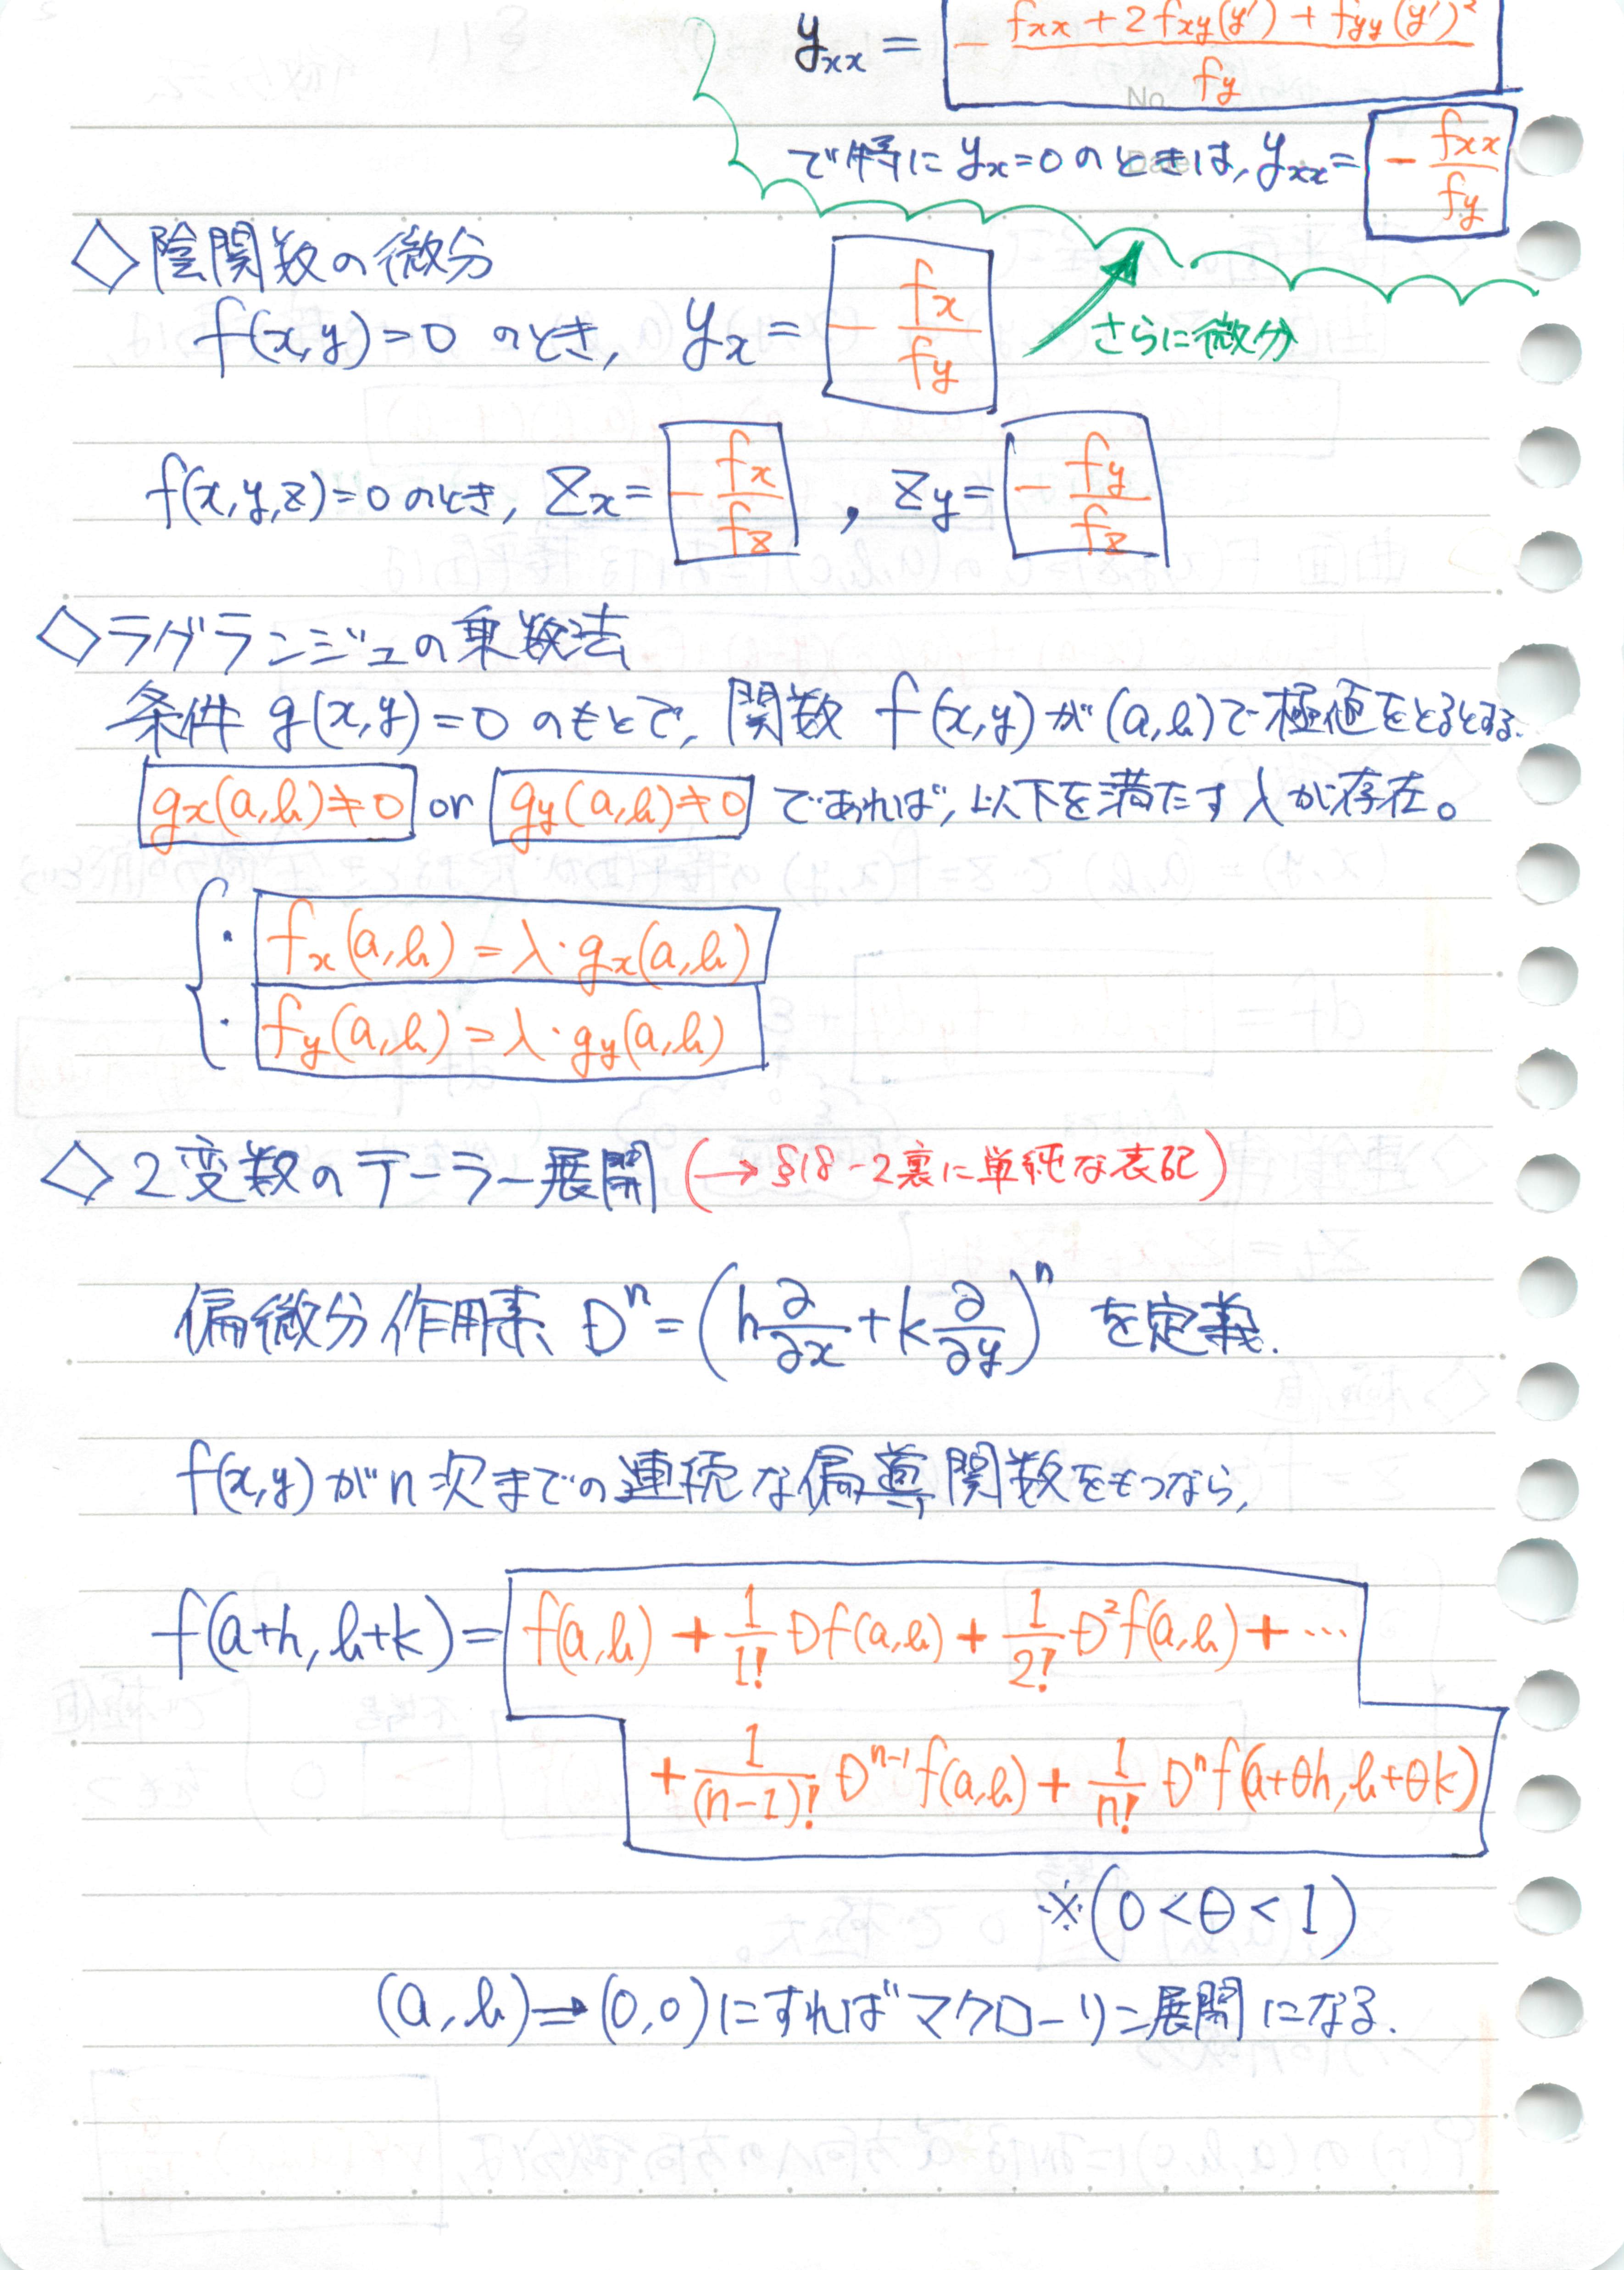 y_xx = - (f_xx + 2f_xy(y') + f_yy(y')²) / f_y
No.
Date
で特に y_x=0 のときは, y_xx = - f_xx / f_y
◇陰関数の微分
f(x,y)=0 のとき, y_x = - f_x / f_y
さらに微分
f(x,y,z)=0 のとき, z_x = - f_x / f_z , z_y = - f_y / f_z
◇ラグランジュの乗数法
条件 g(x,y)=0 のもとで, 関数 f(x,y)が(a,b)で極値をとるとする.
g_x(a,b)≠0 or g_y(a,b)≠0 であれば, 以下を満たす λ が存在。
・ f_x(a,b) = λ・g_x(a,b)
・ f_y(a,b) = λ・g_y(a,b)
◇2変数のテーラー展開 (→ §18-2裏に単純な表記)
偏微分作用素 D^n = (h ∂/∂x + k ∂/∂y)^n を定義.
f(x,y)がn次までの連続な偏導関数をもつなら,
f(a+h, b+k) = f(a,b) + 1/1! Df(a,b) + 1/2! D²f(a,b) + …
+ 1/(n-1)! D^(n-1) f(a,b) + 1/n! D^n f(a+θh, b+θk)
※(0<θ<1)
(a,b)→(0,0)にすればマクローリン展開になる.